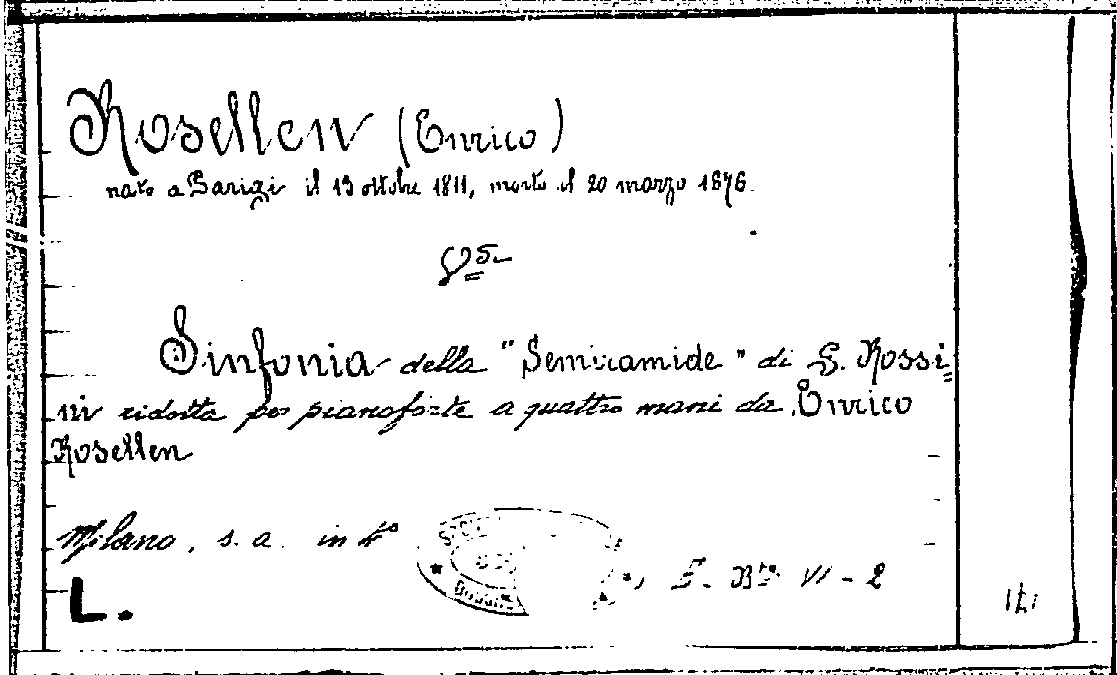 Rosellen (Enrico)
nato a Parigi il 13 ottobre 1811, morto il 20 marzo 1876.
Sinfonia della "Semiramide" di G. Rossi=
ni ridotta per pianoforte a quattro mani da Enrico
Rosellen
Milano, s. a. in 4°
VI - 2
L.